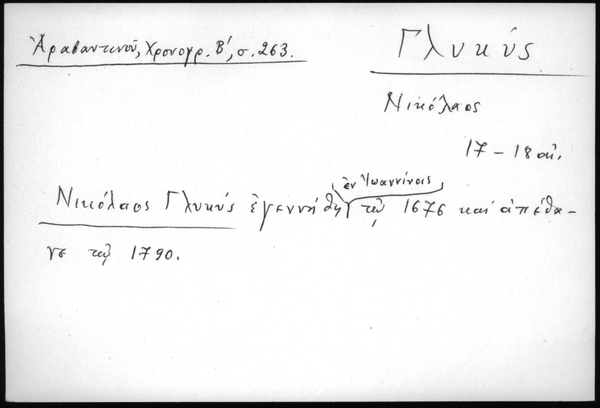 Ἀραβαντινοῦ, Χρονογρ. Β', σ. 263.
Γλυκύς
Νικόλαος
17 – 18 αἰ.
ἐν Ἰωαννίνοις
Νικόλαος Γλυκύς ἐγεννήθη τῷ 1676 καί ἀπέθα-
νε τῷ 1790.